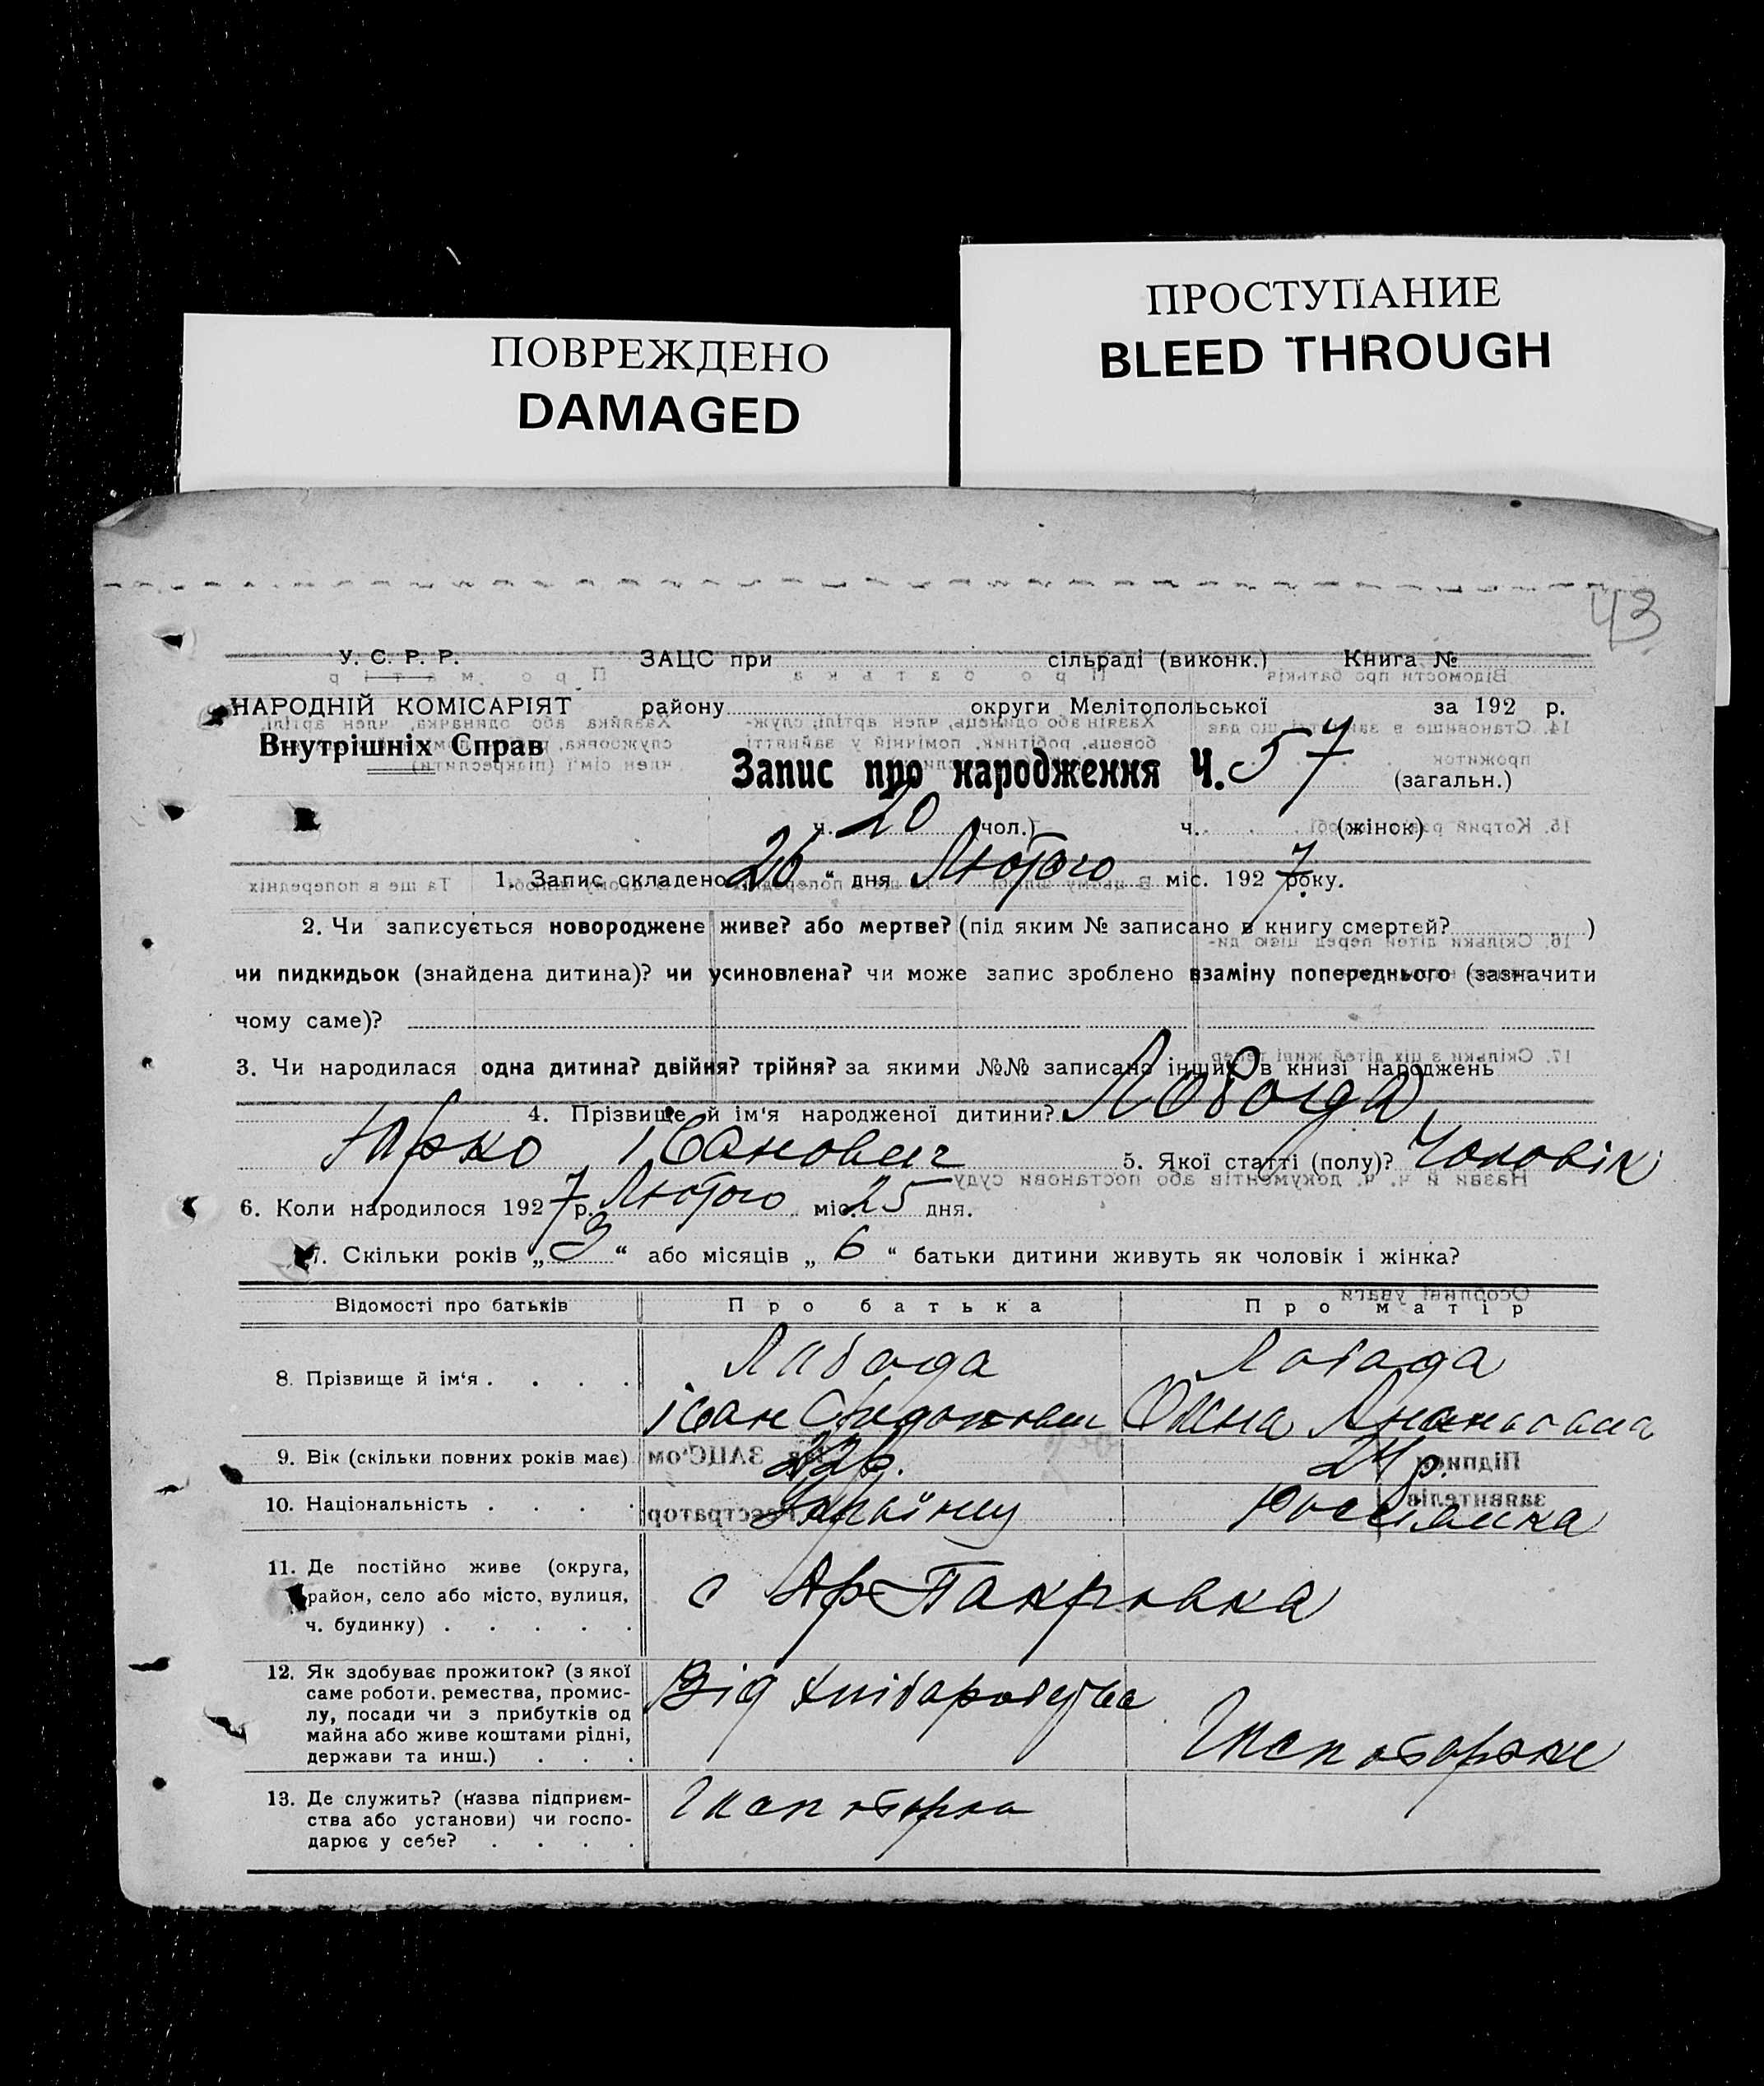 ПРОСТУПАНИЕ
BLEED THROUGH
ПОВРЕЖДЕНО
DAMAGED
43
У. С. Р. Р. ЗАЦС при сільраді (виконк.) Книга №
НАРОДНІЙ КОМІСАРІЯТ району округи Мелітопольської за 192 р.
Внутрішніх Справ
Запис про народження Ч. 57
(загальн.)
ч. 20 (чол.) ч. (жінок)
1. Запис складено 26 “ дня Лютого міс. 1927 року.
2. Чи записується новороджене живе? або мертве? (під яким № записано в книгу смертей? )
чи пидкидьок (знайдена дитина)? чи усиновлена? чи може запис зроблено взаміну попереднього (зазначити
чому саме)?
3. Чи народилася одна дитина? двійня? трійня? за якими №№ записано інших в книзі народжень
4. Прізвище й ім'я народженої дитини? Лобода
Юрко Іванович 5. Якої статті (полу)? Чоловік
6. Коли народилося 1927 р. Лютого міс. 25 дня.
7. Скільки років „ 3 “ або місяців „ 6 “ батьки дитини живуть як чоловік і жінка?
Відомості про батьків Про батька Про матір
8. Прізвище й ім'я . . . . Лабода Лобода
Іван
9. Вік (скільки повних років має) 22 р. 24 р.
10. Національність . . . . Українец Россіянка
11. Де постійно живе (округа,
район, село або місто, вулиця,
ч. будинку) . . . . .
с Покровка
12. Як здобуває прожиток? (з якої
саме роботи, ремества, промис-
лу, посади чи з прибутків од
майна або живе коштами рідні,
держави та инш.) . . .
Від хліборобства
13. Де служить? (назва підприєм-
ства або установи) чи госпо-
дарює у себе? . . . .